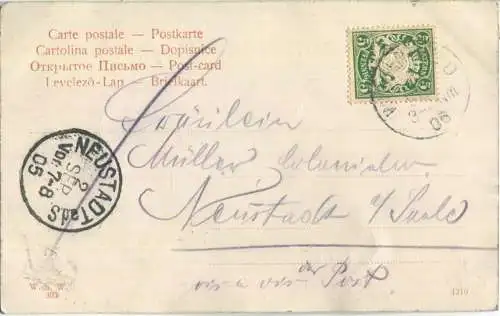 Carte postale — Postkarte
Cartolina postale — Dopisnice
Открытое Письмо — Post-card
Levelező-Lap — Briefkaart.
Fräulein
Müller, Colonialw.
Neustadt a/Saale
vis a vis der Post.
NEUSTADT a/S
2
SEP
Vor. 7-8
05
W. S. W.
1210